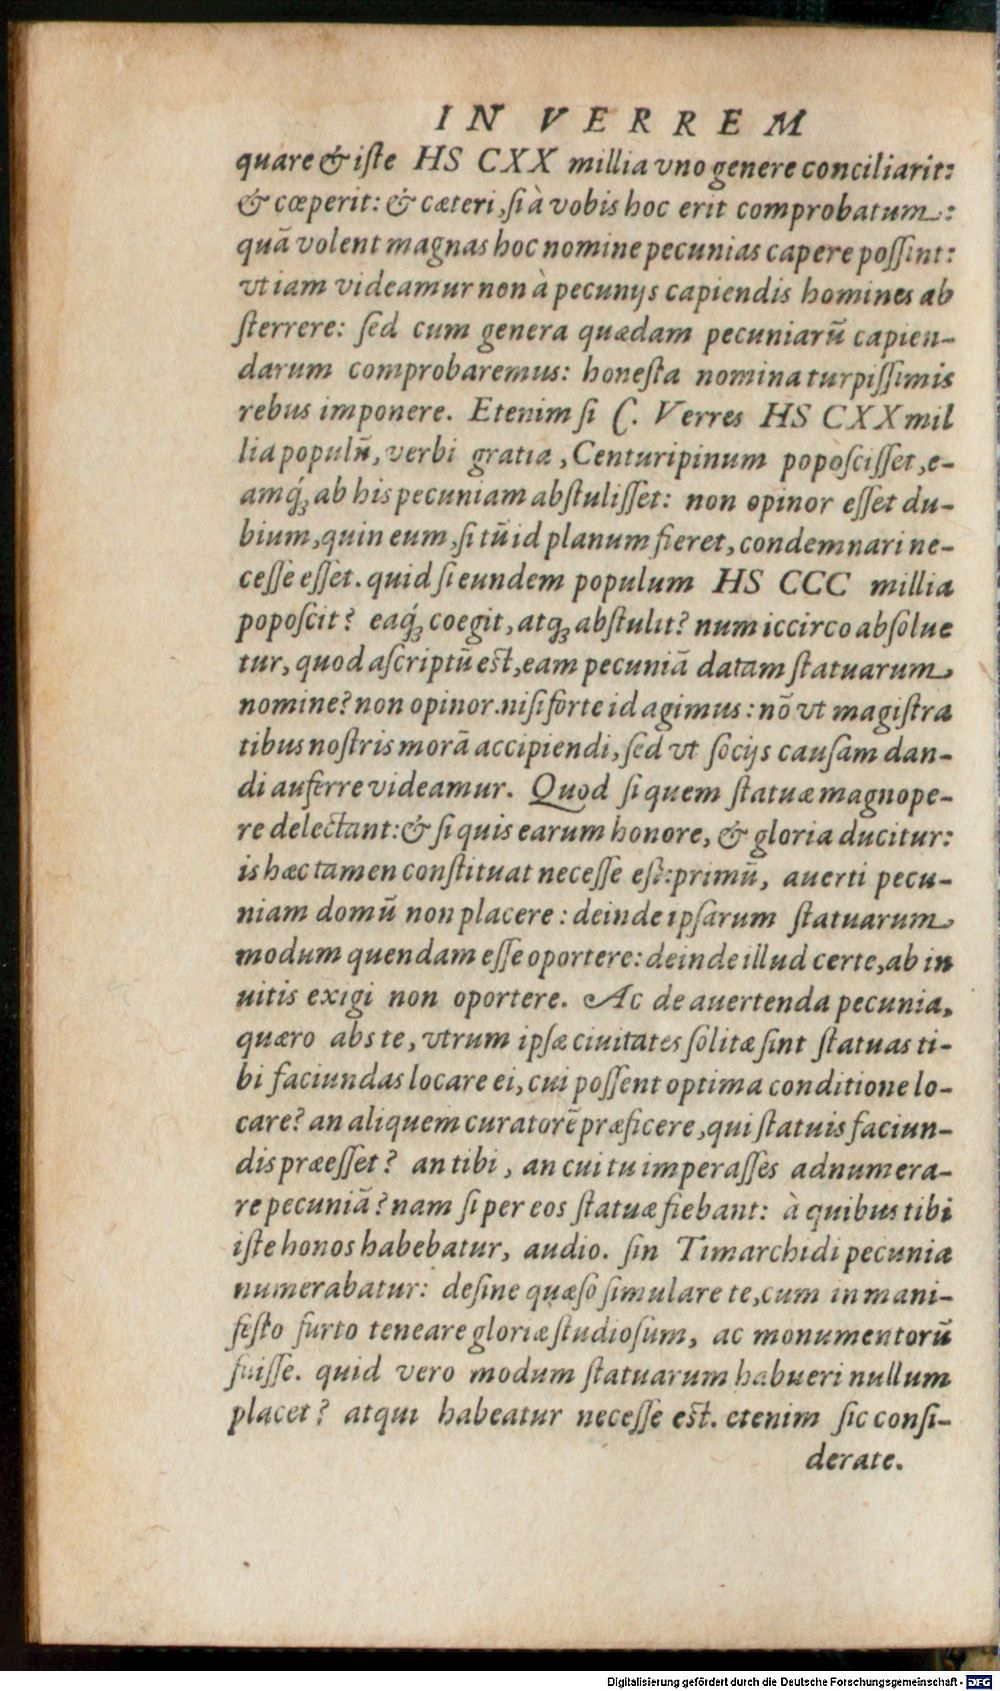 IN VERREM
quare & iſte HS CXX millia vno genere conciliarit:
& cœperit: & cæteri, ſi à vobis hoc erit comprobatum:
quā volent magnas hoc nomine pecunias capere poſſint:
vt iam videamur non à pecunijs capiendis homines ab
ſterrere: ſed cum genera quædam pecuniarū capien-
darum comprobaremus: honeſta nomina turpiſſimis
rebus imponere. Etenim ſi C. Verres HS CXX mil
lia populū, verbi gratia, Centuripinum popoſciſſet, e-
amq́ꝫ ab his pecuniam abſtuliſſet: non opinor eſſet du-
bium, quin eum, ſi tū id planum fieret, condemnari ne-
ceſſe eſſet. quid ſi eundem populum HS CCC millia
popoſcit? eaq́ꝫ coegit, atqꝫ abſtulit? num iccirco abſolue
tur, quod aſcriptū eſt, eam pecuniā datam ſtatuarum
nomine? non opinor. niſi forte id agimus: nō vt magiſtra
tibus noſtris morā accipiendi, ſed vt ſocijs cauſam dan-
di auferre videamur. Quod ſi quem ſtatuæ magnope-
re delectant: & ſi quis earum honore, & gloria ducitur:
is hæc tamen conſtituat neceſſe eſt: primū, auerti pecu-
niam domū non placere: deinde ipſarum ſtatuarum
modum quendam eſſe oportere: deinde illud certe, ab in
uitis exigi non oportere. Ac de auertenda pecunia,
quæro abs te, vtrum ipſæ ciuitates ſolitæ ſint ſtatuas ti-
bi faciundas locare ei, cui poſſent optima conditione lo-
care? an aliquem curatorē præficere, qui ſtatuis faciun-
dis præeſſet? an tibi, an cui tu imperaſſes adnumera-
re pecuniā? nam ſi per eos ſtatuæ fiebant: à quibus tibi
iſte honos habebatur, audio. ſin Timarchidi pecunia
numerabatur: deſine quæſo ſimulare te, cum in mani-
feſto furto teneare gloriæ ſtudioſum, ac monumentorū
fuiſſe. quid vero modum ſtatuarum haberi nullum
placet? atqui habeatur neceſſe eſt. etenim ſic conſi-
derate.
Digitalisierung gefördert durch die Deutsche Forschungsgemeinschaft - DFG